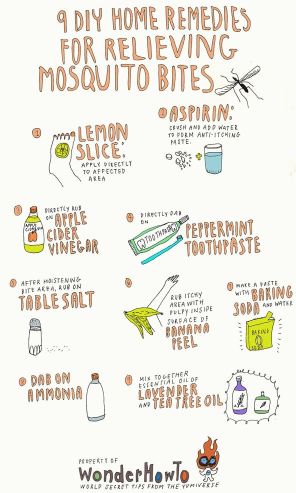 9 DIY HOME REMEDIES
FOR RELIEVING
MOSQUITO BITES
1
LEMON
SLICE:
APPLY DIRECTLY
TO AFFECTED
AREA
2
ASPIRIN:
CRUSH AND ADD WATER
TO FORM ANTI-ITCHING
PASTE.
3
DIRECTLY RUB
ON APPLE
CIDER
VINEGAR
DIRECTLY DAB
ON
PEPPERMINT
TOOTHPASTE
TOOTHPASTE
AFTER MOISTENING
BITE AREA, RUB ON
TABLE SALT
RUB ITCHY
AREA WITH
PULPY INSIDE
SURFACE OF
BANANA
PEEL
MAKE A PASTE
WITH BAKING
SODA AND WATER
BAKING
DAB ON
AMMONIA
MIX TOGETHER
ESSENTIAL OIL OF
LAVENDER
AND TEA TREE OIL
PROPERTY OF
WonderHowTo
WORLD SECRET TIPS FROM THE YUMIVERSE